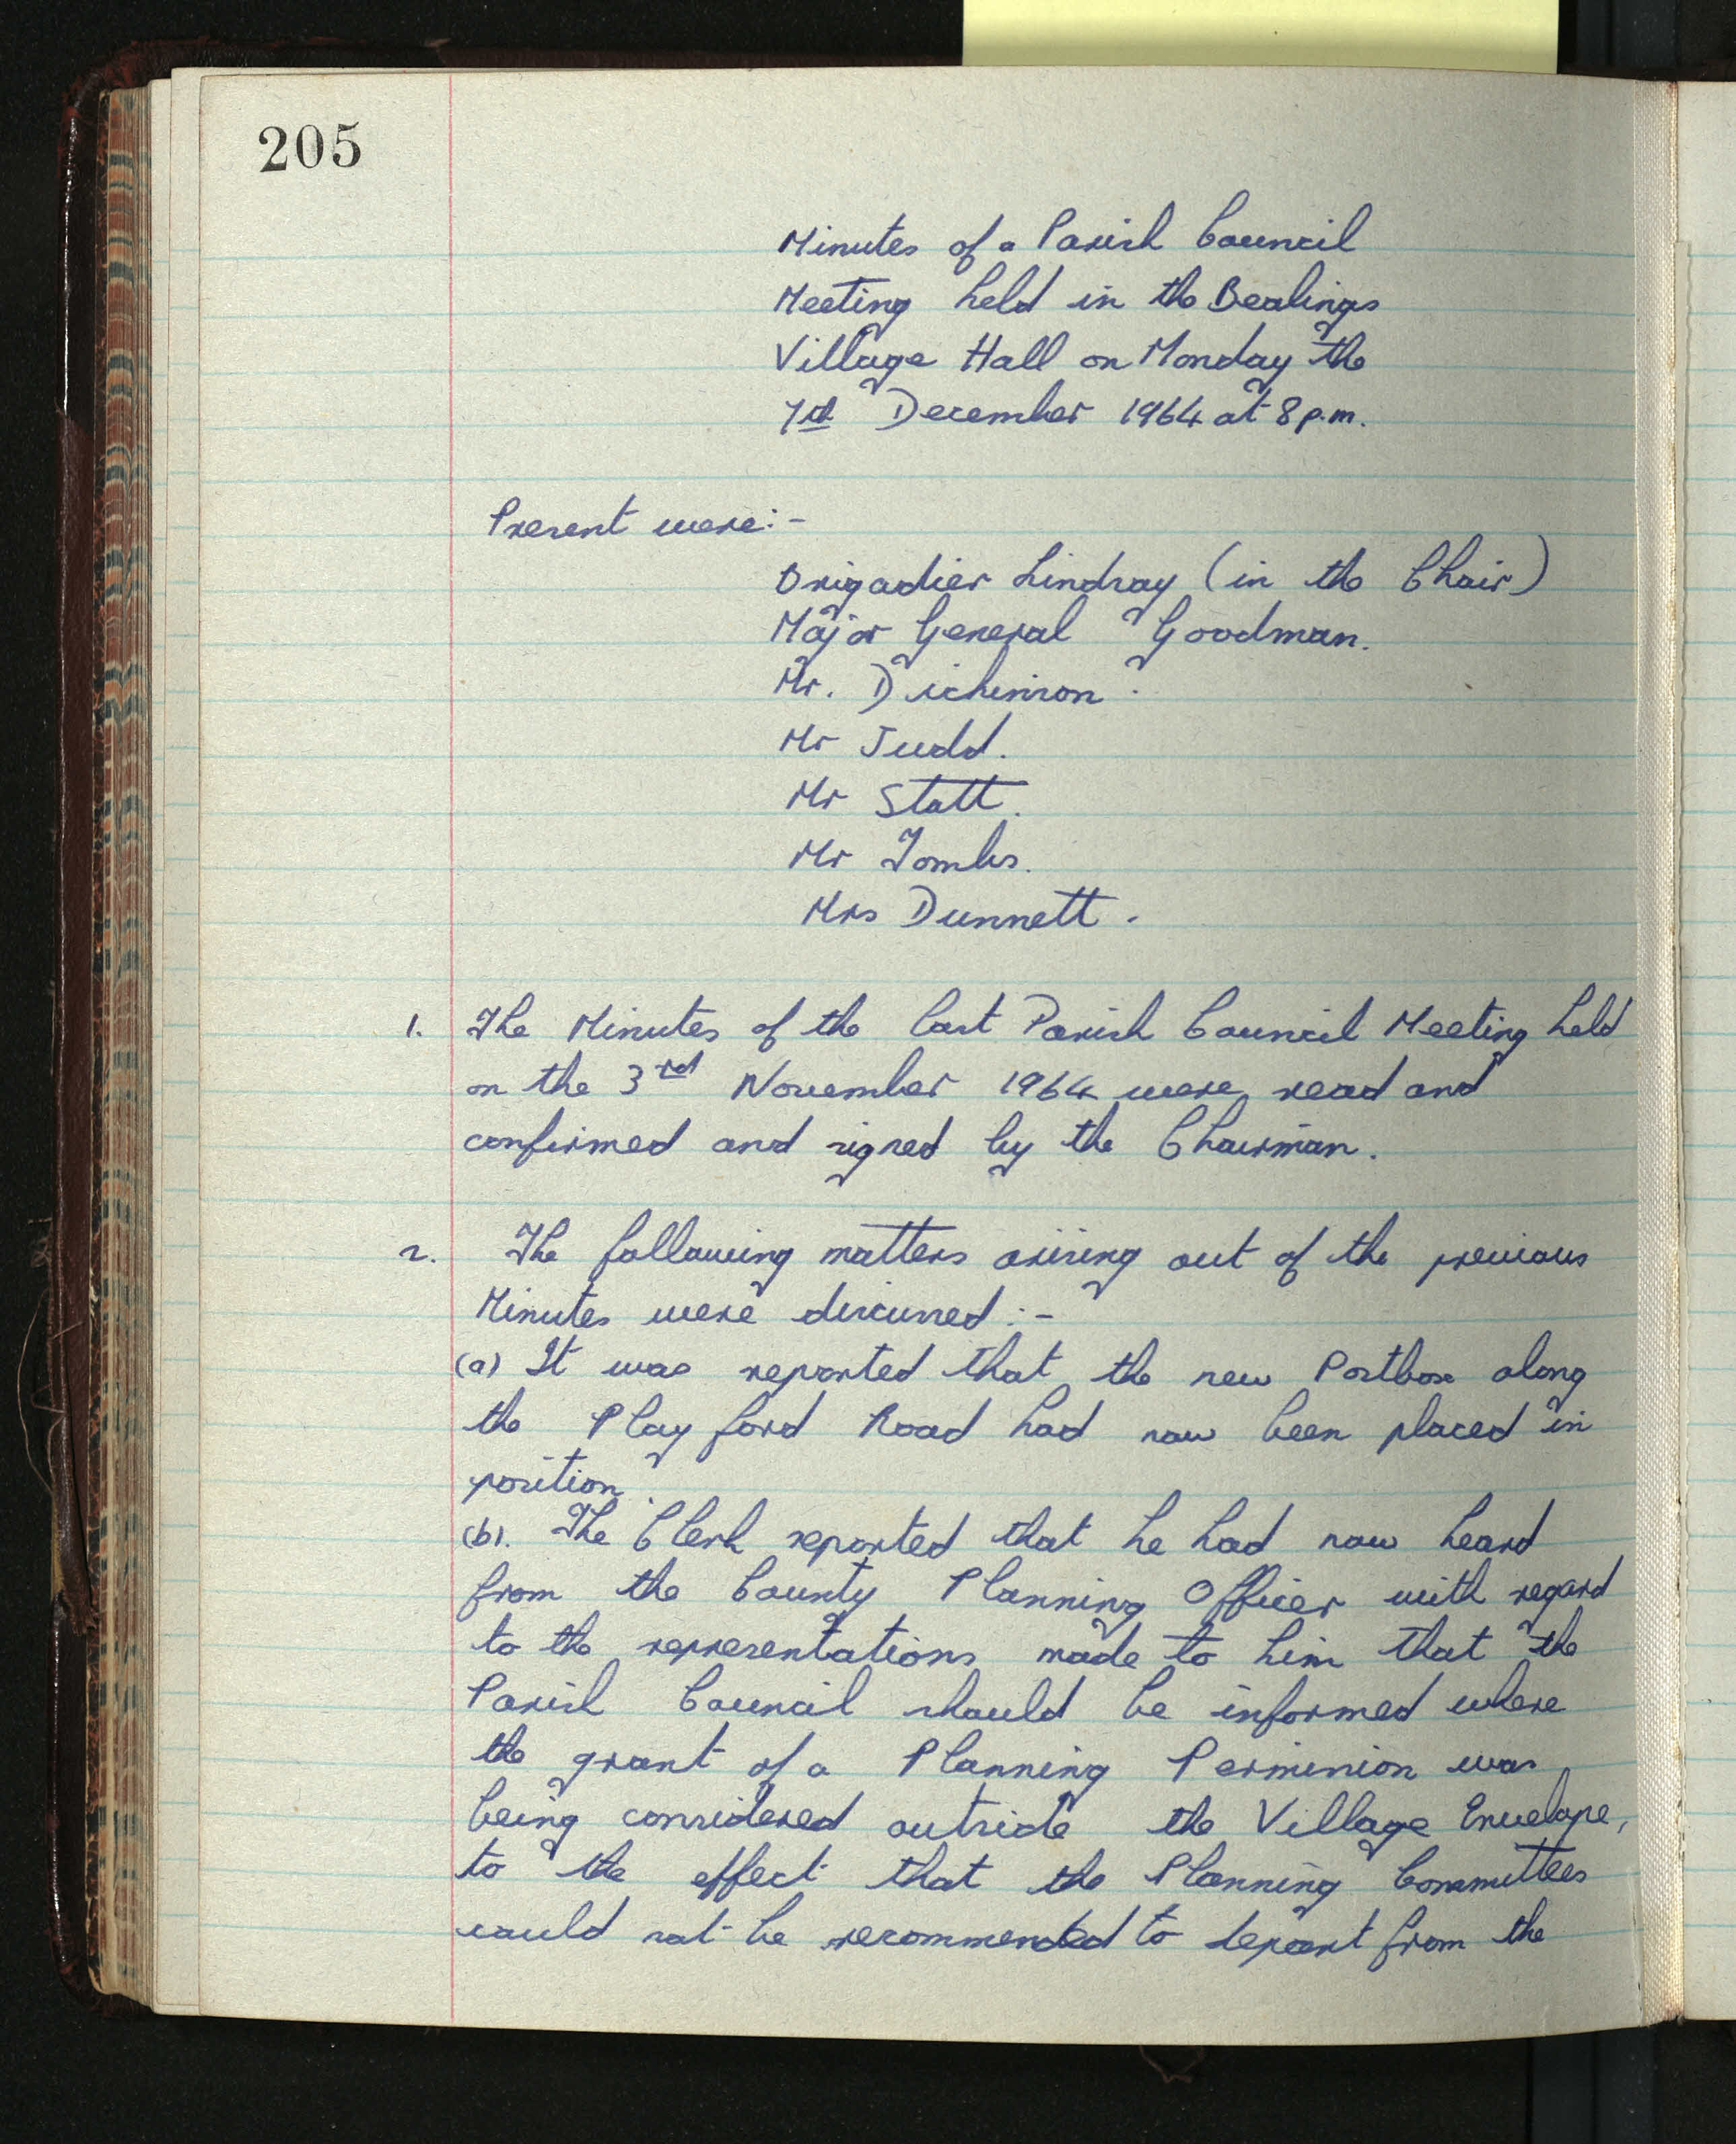 205
Minutes of a Parish Council
Meeting held in the Bealings
Village Hall on Monday the
7th December 1964 at 8 p.m.
Present were:-
Brigadier Lindsay (in the Chair)
Major General Goodman.
Mr. Dickinson.
Mr Judd.
Mr Stott.
Mr Tombs.
Mrs Dunnett.
1. The Minutes of the last Parish Council Meeting held
on the 3rd November 1964 were read and
confirmed and signed by the Chairman.
2. The following matters arising out of the previous
Minutes were discussed:-
(a) It was reported that the new Postbox along
the Playford Road had now been placed in
position.
(b). The Clerk reported that he had now heard
from the County Planning Officer with regard
to the representations made to him that the
Parish Council should be informed where
the grant of a Planning Permission was
being considered outside the Village Envelope,
to the effect that the Planning Committees
would not be recommended to depart from the